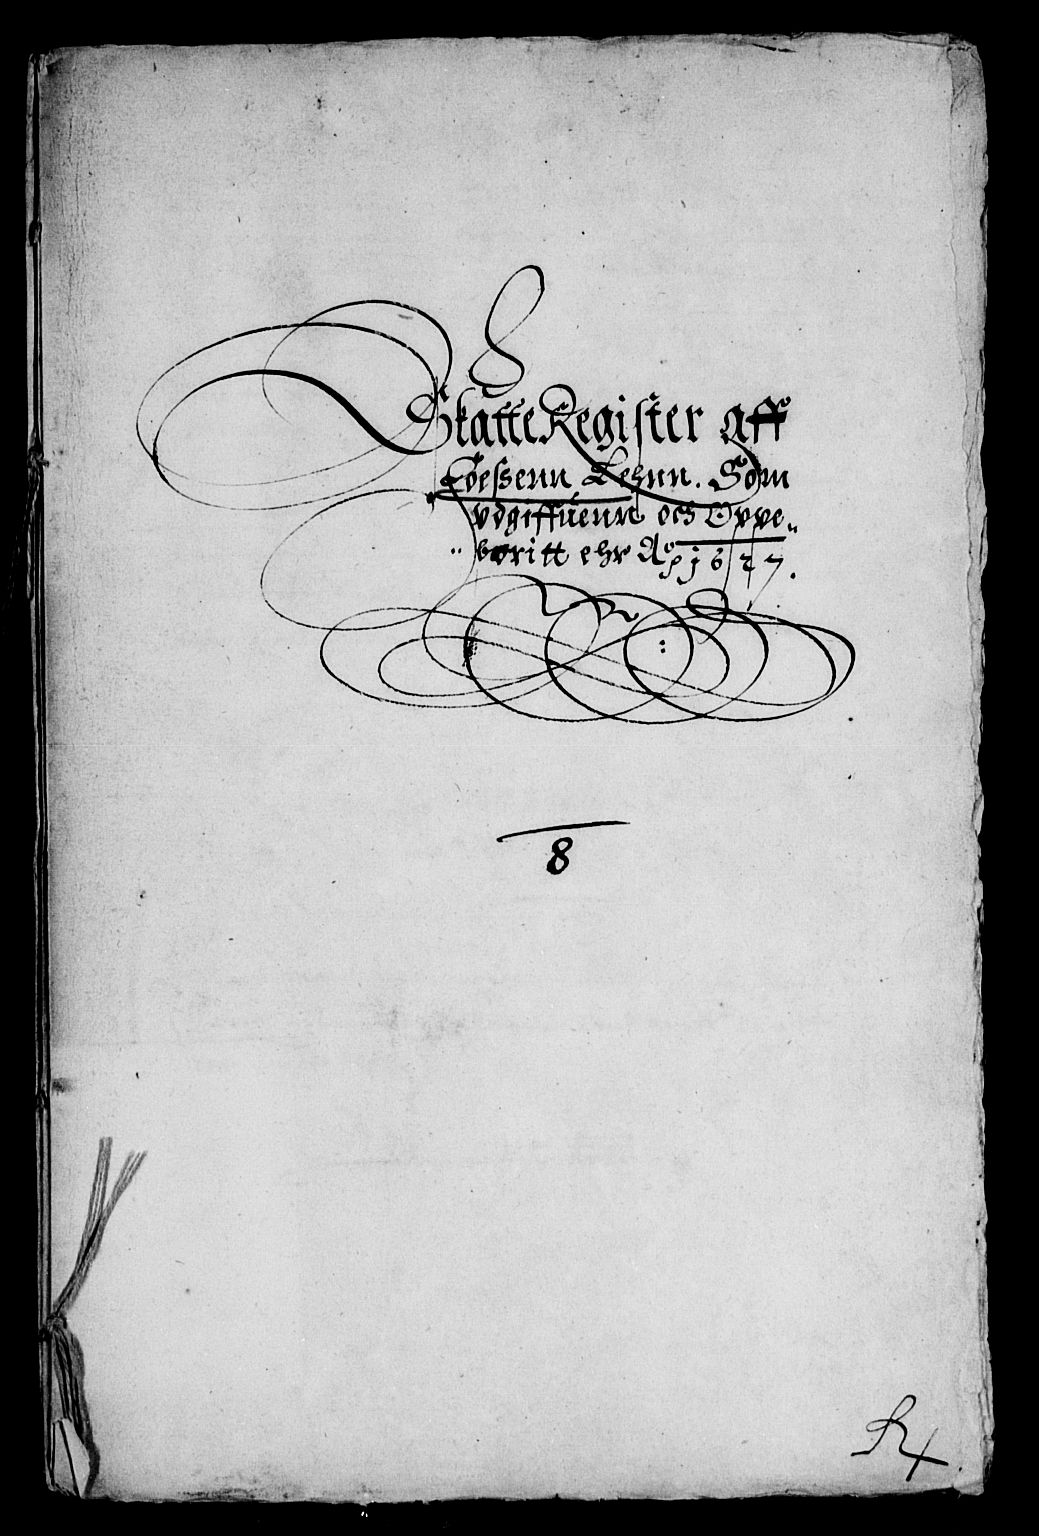 Skatte Register aff
Toessenn Lehnn. Som
vdgiffuenn och Oppe„
„boritt ehr Aō 1627.
8